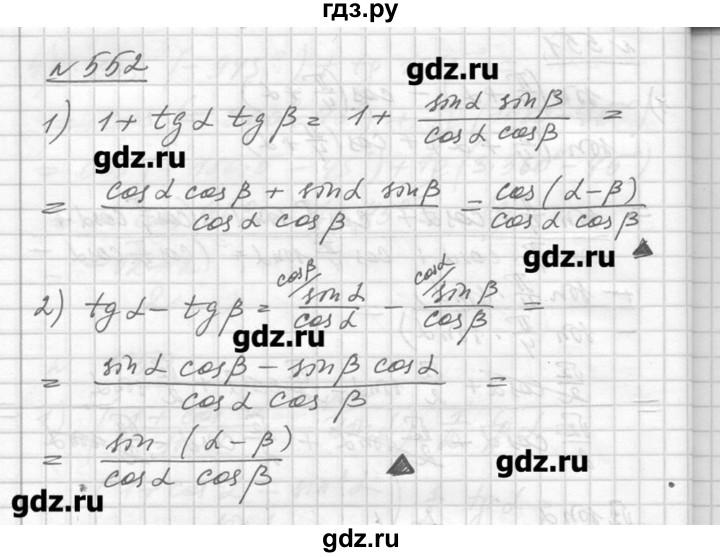 гдз.ру
№ 552
gdz.ru
1) 1 + tg α tg β = 1 + (sin α sin β)/(cos α cos β) =
gdz.ru
= (cos α cos β + sin α sin β)/(cos α cos β) = cos (α - β)/(cos α cos β)
gdz.ru ▲
2) tg α - tg β = ^{cos β/} sin α/cos α - ^{cos α/} sin β/cos β =
gdz.ru
= (sin α cos β - sin β cos α)/(cos α cos β) =
= sin (α - β)/(cos α cos β) ▲
gdz.ru
gdz.ru
гдз.ру